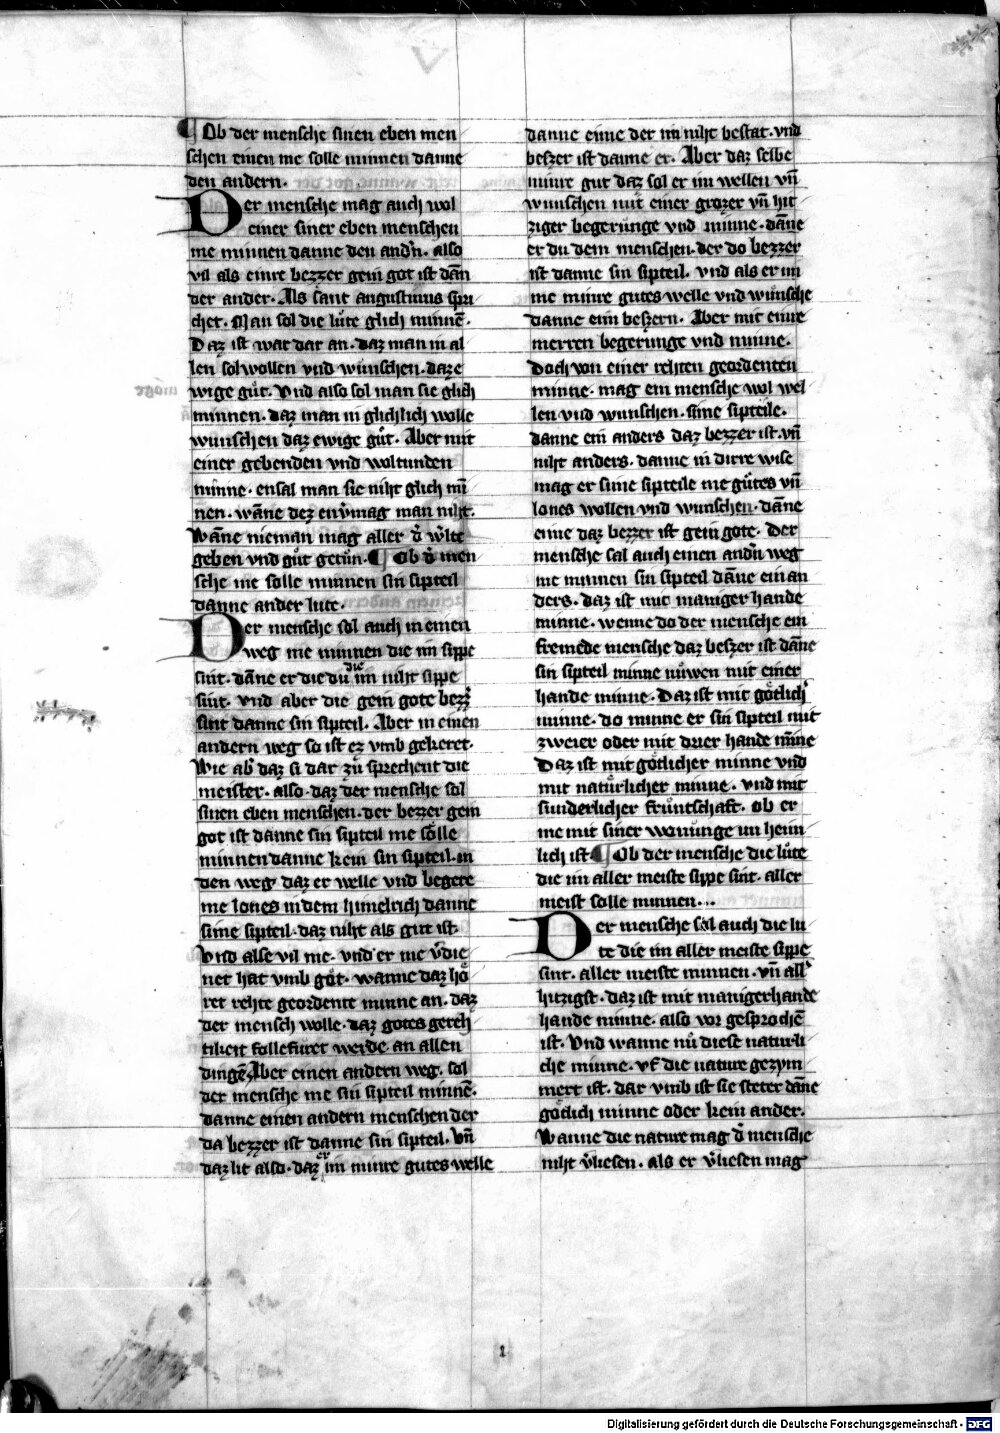 ¶ Ob der mensche sinen eben men
schen einen me solle minnen danne
den andern.
Der mensche mag auch wol
einer siner eben menschen
me minnen danne den andn̄. also
vil als einre bezzer gein got ist dan̄
der ander. Als sant augustinus spri
chet. Man sol die lůte glich minnē.
Daz ist war dar an. daz man in al
len sol wollen vnd wůnschen. daz e
wige gůt. Vnd also sol man sie glich
minnen. daz man in glichlich wolle
wunschen daz ewige gůt. Aber mit
einer gebenden vnd woltunden
minne. ensal man sie niht glich mī
nen. wāne dez env̄mag man niht.
Wāne nieman mag aller d̄ w̄lte
geben vnd gůt getůn. ¶ Ob d̄ men
sche me solle minnen sin sipteil
danne ander lute.
Der mensche sol auch in einen
weg me minnen die im sippe
sint. dāne er die du die im niht sippe
sint. vnd aber die gein gote bezz̄
sint danne sin sipteil. Aber in einen
andern weg so ist ez vmb gekeret.
Wie ab̄ daz si dar zů sprechent die
meister. also. daz der mensche sol
sinen eben menschen. der bezzer gein
got ist danne sin sipteil me sölle
minnen danne kein sin sipteil. in
den weg daz er welle vnd begere
me lones in dem himelrich danne
sime sipteil. daz niht als gut ist.
Vnd alse vil me. vnd er me v̄die
net hat vmb got. wanne daz hö
ret rehte geordente minne an. daz
der mensch wolle. daz gotes gereh
tikeit follefuret werde an allen
dingē. Aber einen andern weg. sol
der mensche me sin sipteil minnē.
danne einen andern menschen der
da bezzer ist danne sin sipteil. Vn̄
daz lit also. daz er im minre gutes welle
danne eime der im niht bestat. vnd
beszer ist danne er. Aber daz selbe
minre gut daz sol er im wellen vn̄
wunschen mit einer grozer vn̄ hit
ziger begerůnge vnd minne. dāne
er du dem menschen. der do bezzer
ist danne sin sipteil. vnd als er im
me minre gutes welle vnd wůnsche
danne eim beszern. Aber mit eime
merren begerunge vnd minne.
Doch von einer rehten geordenten
minne. mag ein mensche wol wel
len vnd wunschen. sime sipteile.
danne ein anders daz bezzer ist. vn̄
niht anders. danne in dirre wise
mag er sime sipteile me gůtes vn̄
lones wollen vnd wunschen. dāne
eime daz bezzer ist gein gote. Der
mensche sal auch einen andn̄ weg
me minnen sin sipteil dāne ein an
ders. daz ist mit maniger hande
minne. wenne do der mensche ein
fremede mensche daz beszer ist dāne
sin sipteil minne nůwen mit einer
hande minne. Daz ist mit götlich̄
minne. do minne er sin sipteil mit
zweier oder mit drier hande mīne
Daz ist mit götlicher minne vnd
mit natůrlicher minne. vnd mit
sunderlicher frůntschaft. ob er
me mit siner wonůnge im heim
lich ist ¶ Ob der mensche die lůte
die im aller meiste sippe sint. aller
meist solle minnen...
Der mensche sol auch die lu
te die im aller meiste sippe
sint. aller meiste minnen. vn̄ all̄
hitzigst. daz ist mit manigerhande
hande minne. also vor gesprochē
ist. Vnd wanne nů diese naturli
che minne. vf die nature gezym
mert ist. dar vmb ist sie steter dāne
götlich minne oder kein ander.
Wanne die nature mag d̄ mensche
niht v̄liesen. als er v̄liesen mag
1
Digitalisierung gefördert durch die Deutsche Forschungsgemeinschaft - DFG